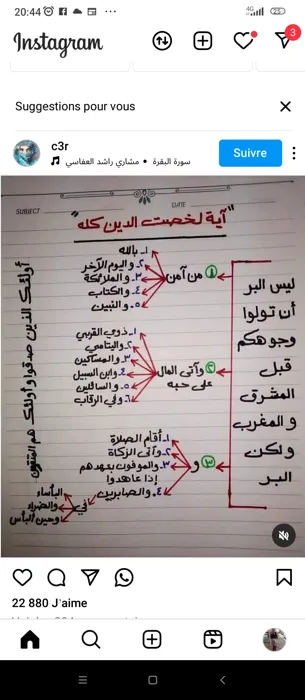 20:44
4G
23
Instagram
3
Suggestions pour vous
c3r
سورة البقرة • مشاري راشد العفاسي
Suivre
SUBJECT
DATE
"آية لخصت الدين كله"
ليس البر
أن تولوا
وجوهكم
قبل
المشرق
والمغرب
ولكن
البر
١ من آمن
١- بالله
٢- واليوم الآخر
٣- والملائكة
٤- والكتاب
٥- والنبين
٢ وآتى المال
على حبه
١- ذوي القربى
٢- واليتامى
٣- والمساكين
٤- وابن السبيل
٥- والسائلين
٦- وفي الرقاب
٣ و
١- أقام الصلاة
٢- وآتى الزكاة
٣- والموفون بعهدهم
إذا عاهدوا
٤- والصابرين في
البأساء
والضراء
وحين البأس
أولئك الذين صدقوا وأولئك هم المتقون
22 880 J'aime